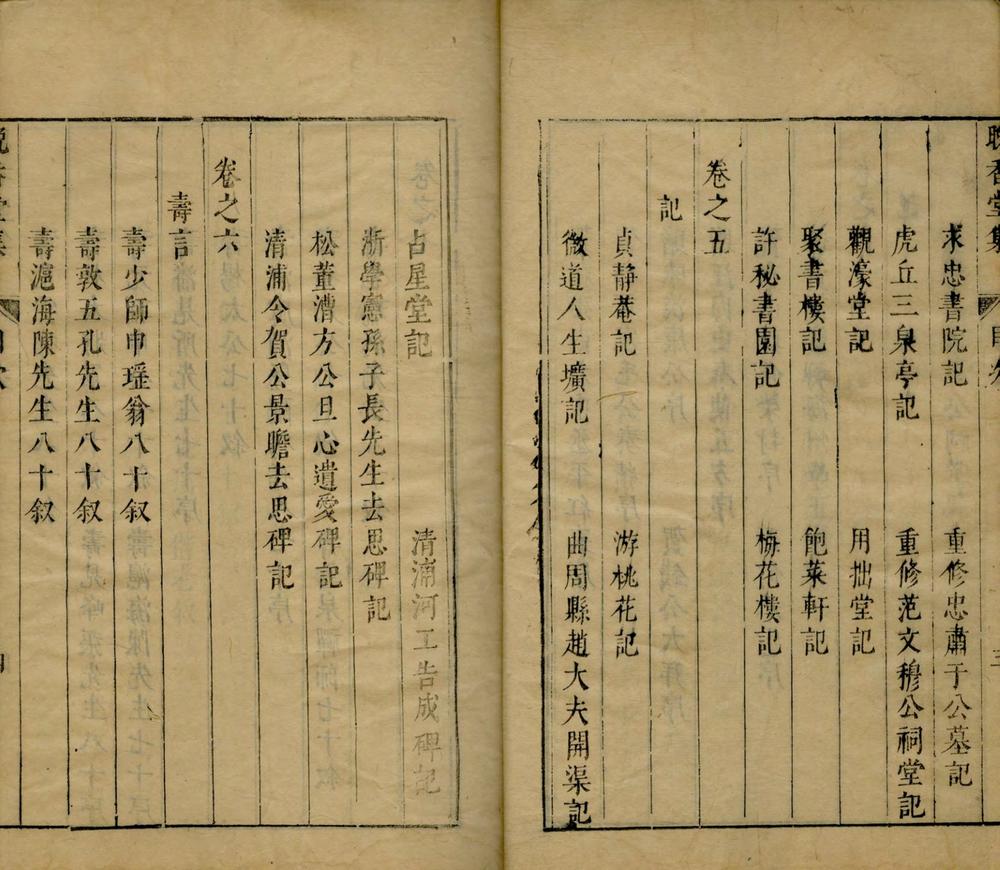 晚香堂集 目次 三
求忠書院記 重修忠肅于公墓記
虎丘三泉亭記 重修范文穆公祠堂記
觀濠堂記 用拙堂記
聚書樓記 飽菜軒記
許秘書園記 梅花樓記
卷之五
記
貞靜菴記 游桃花記
微道人生壙記 曲周縣趙大夫開渠記
占星堂記 清浦河工告成碑記
浙學憲孫子長先生去思碑記
松董漕方公旦心遺愛碑記
清浦令賀公景瞻去思碑記
卷之六
壽言
壽少師申瑶翁八十叙
壽敦五孔先生八十叙
壽滬海陳先生八十叙
晚香堂集 目次 四